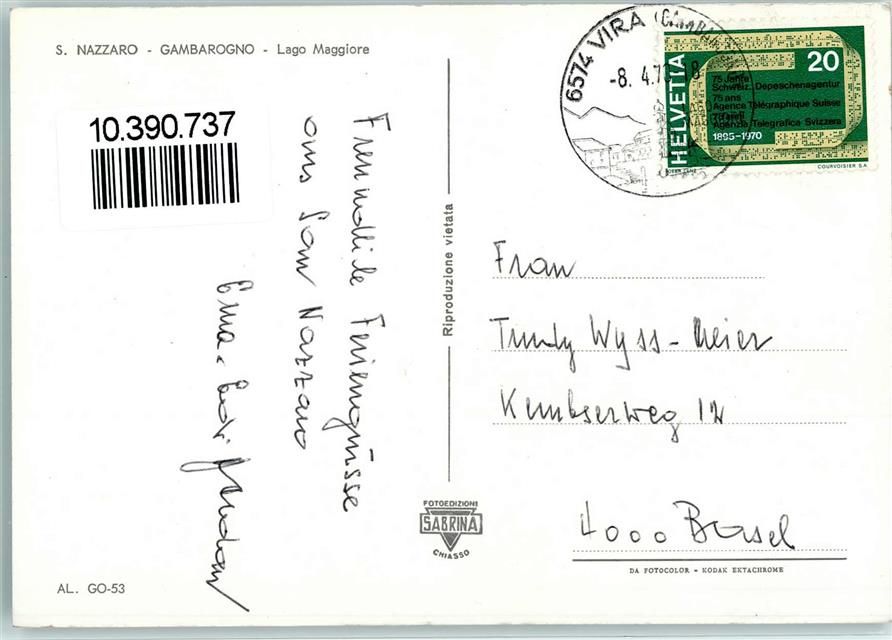 S. NAZZARO - GAMBAROGNO - Lago Maggiore
10.390.737
Freundliche Feriengrüsse
aus San Nazzaro
Erna
AL. GO-53
Riproduzione vietata
FOTOEDIZIONI
SABRINA
CHIASSO
6574 VIRA (GAMBAROGNO)
-8. 4.70 18
HELVETIA
20
75 Jahre
Schweiz. Depeschenagentur
75 ans
Agence Télégraphique Suisse
75 anni
Agenzia Telegrafica Svizzera
1895-1970
COURVOISIER S.A.
Frau
Trudy Wyss-Meier
Kembserweg 12
4000 Basel
DA FOTOCOLOR - KODAK EKTACHROME